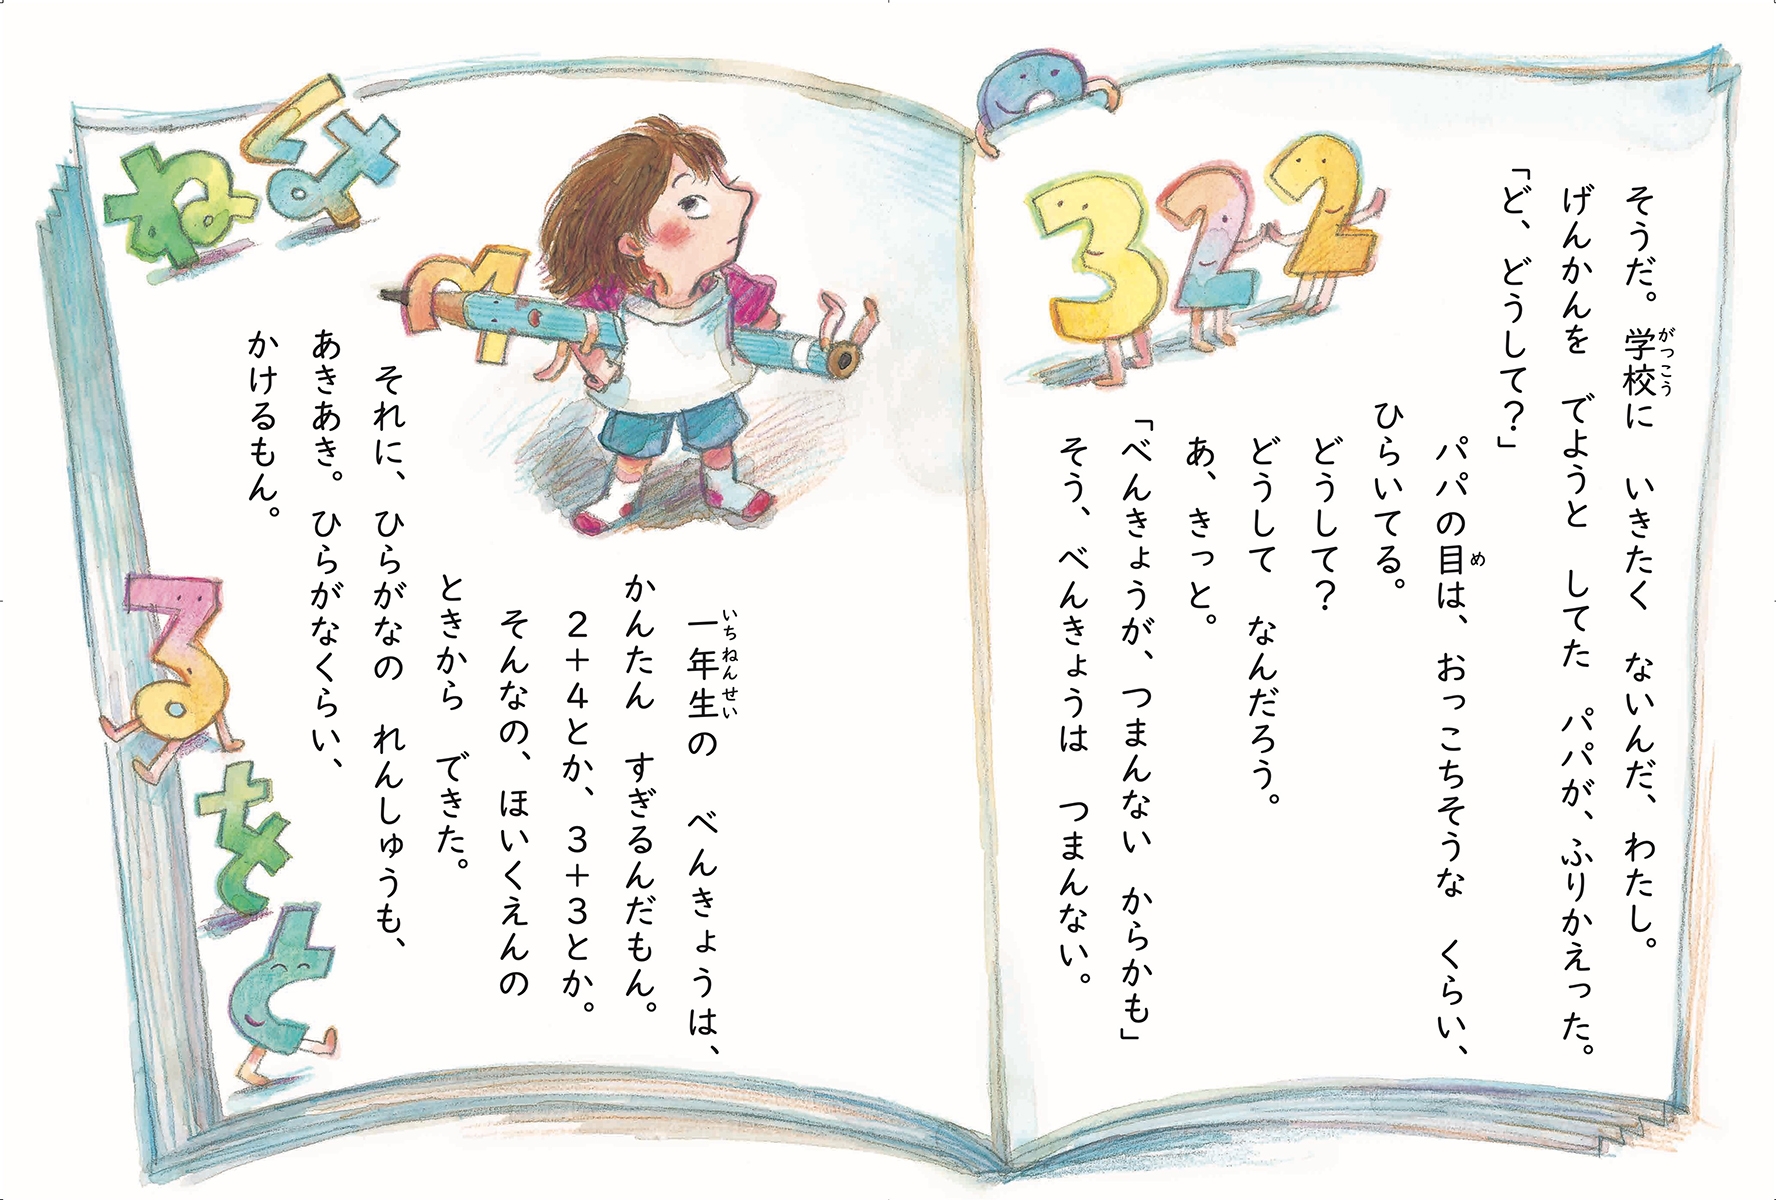 そうだ。学校に　いきたく　ないんだ、わたし。
がっこう
げんかんを　でようと　してた　パパが、ふりかえった。
「ど、どうして？」
パパの目は、おっこちそうな　くらい、
め
ひらいてる。
どうして？
どうして　なんだろう。
あ、きっと。
「べんきょうが、つまんない　からかも」
そう、べんきょうは　つまんない。
322
一年生の　べんきょうは、
いちねんせい
かんたん　すぎるんだもん。
２＋４とか、３＋３とか。
そんなの、ほいくえんの
ときから　できた。
それに、ひらがなの　れんしゅうも、
あきあき。ひらがなくらい、
かけるもん。
4
く
ね
よ
る
を
と